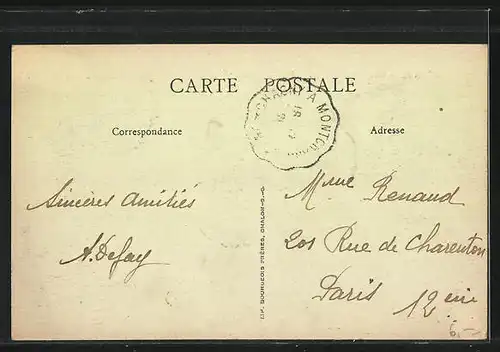 CARTE POSTALE
Correspondance
Adresse
À MONTCHANIN
18
Sincères amitiés
A. Defay
IMP. BOURGEOIS FRÈRES, CHALON-S-S.
Mme Renaud
201 Rue de Charenton
Paris 12 eme
6.—